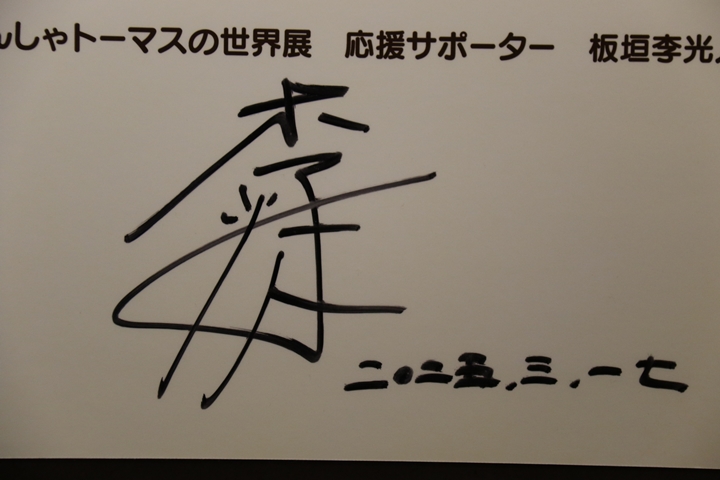 んしゃトーマスの世界展 応援サポーター 板垣李光人
李光人
二〇二五.三.一七